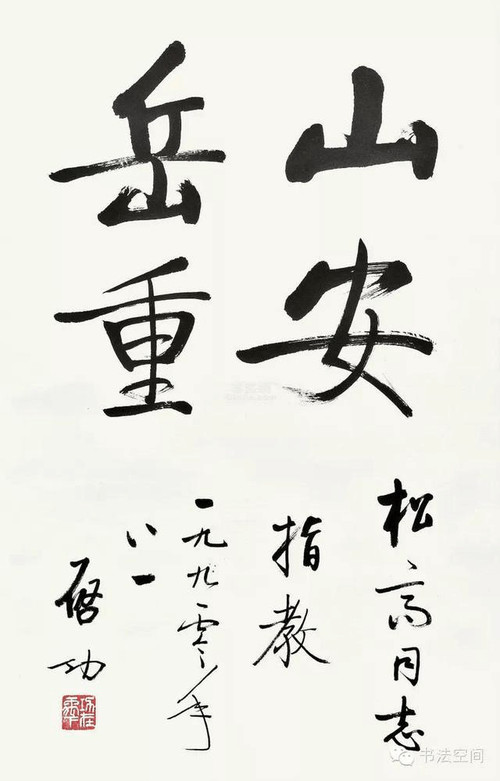 山安
岳重
松高同志
指教
一九九零年
八一
启功
书法空间